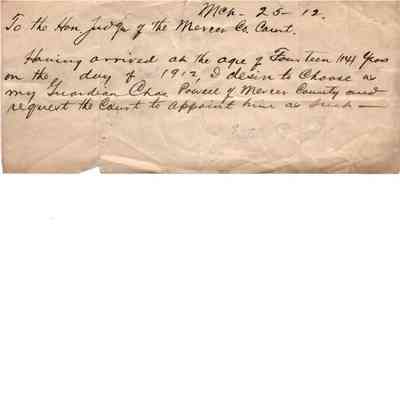 Mch - 25 - 12.
To the Hon Judge of the Mercer Co. Court.
Having arrived at the age of Fourteen (14) Years
on the day of 1912, I desire to Choose as
my Guardian Chas Powell of Mercer County and
request the Court to appoint him as such —